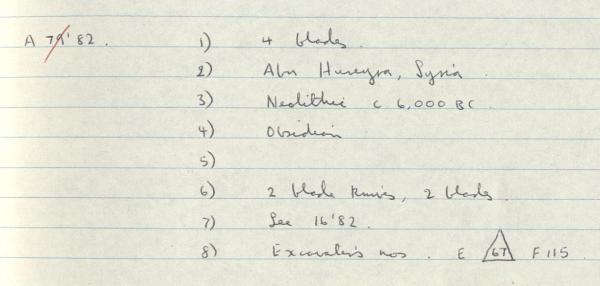 A 79'82. 1) 4 blades.
2) Abu Hureyra, Syria.
3) Neolithic c 6,000 BC.
4) Obsidian
5)
6) 2 blade knives, 2 blades.
7) See 16'82.
8) Excavator's nos. E 67 F 115